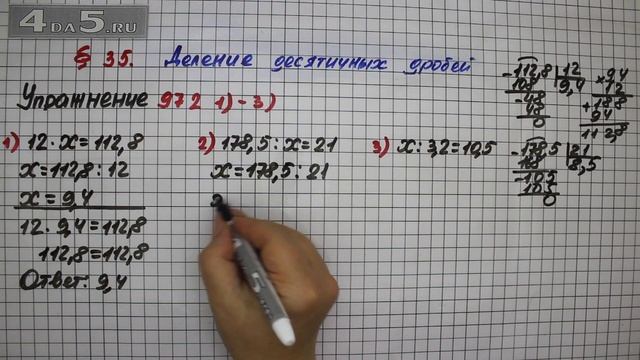 4DA5.RU
§ 35. Деление десятичных дробей
Упражнение 972 1)-3)
1) 12 · x = 112,8
x = 112,8 : 12
x = 9,4
12 · 9,4 = 112,8
112,8 = 112,8
Ответ: 9,4
2) 178,5 : x = 21
x = 178,5 : 21
3) x : 3,2 = 10,5
- 112,8 | 12
108 | 9,4
- 48
48
0
× 9,4
12
+ 188
94
112,8
- 178,5 | 21
168 | 8,5
- 105
105
0
5